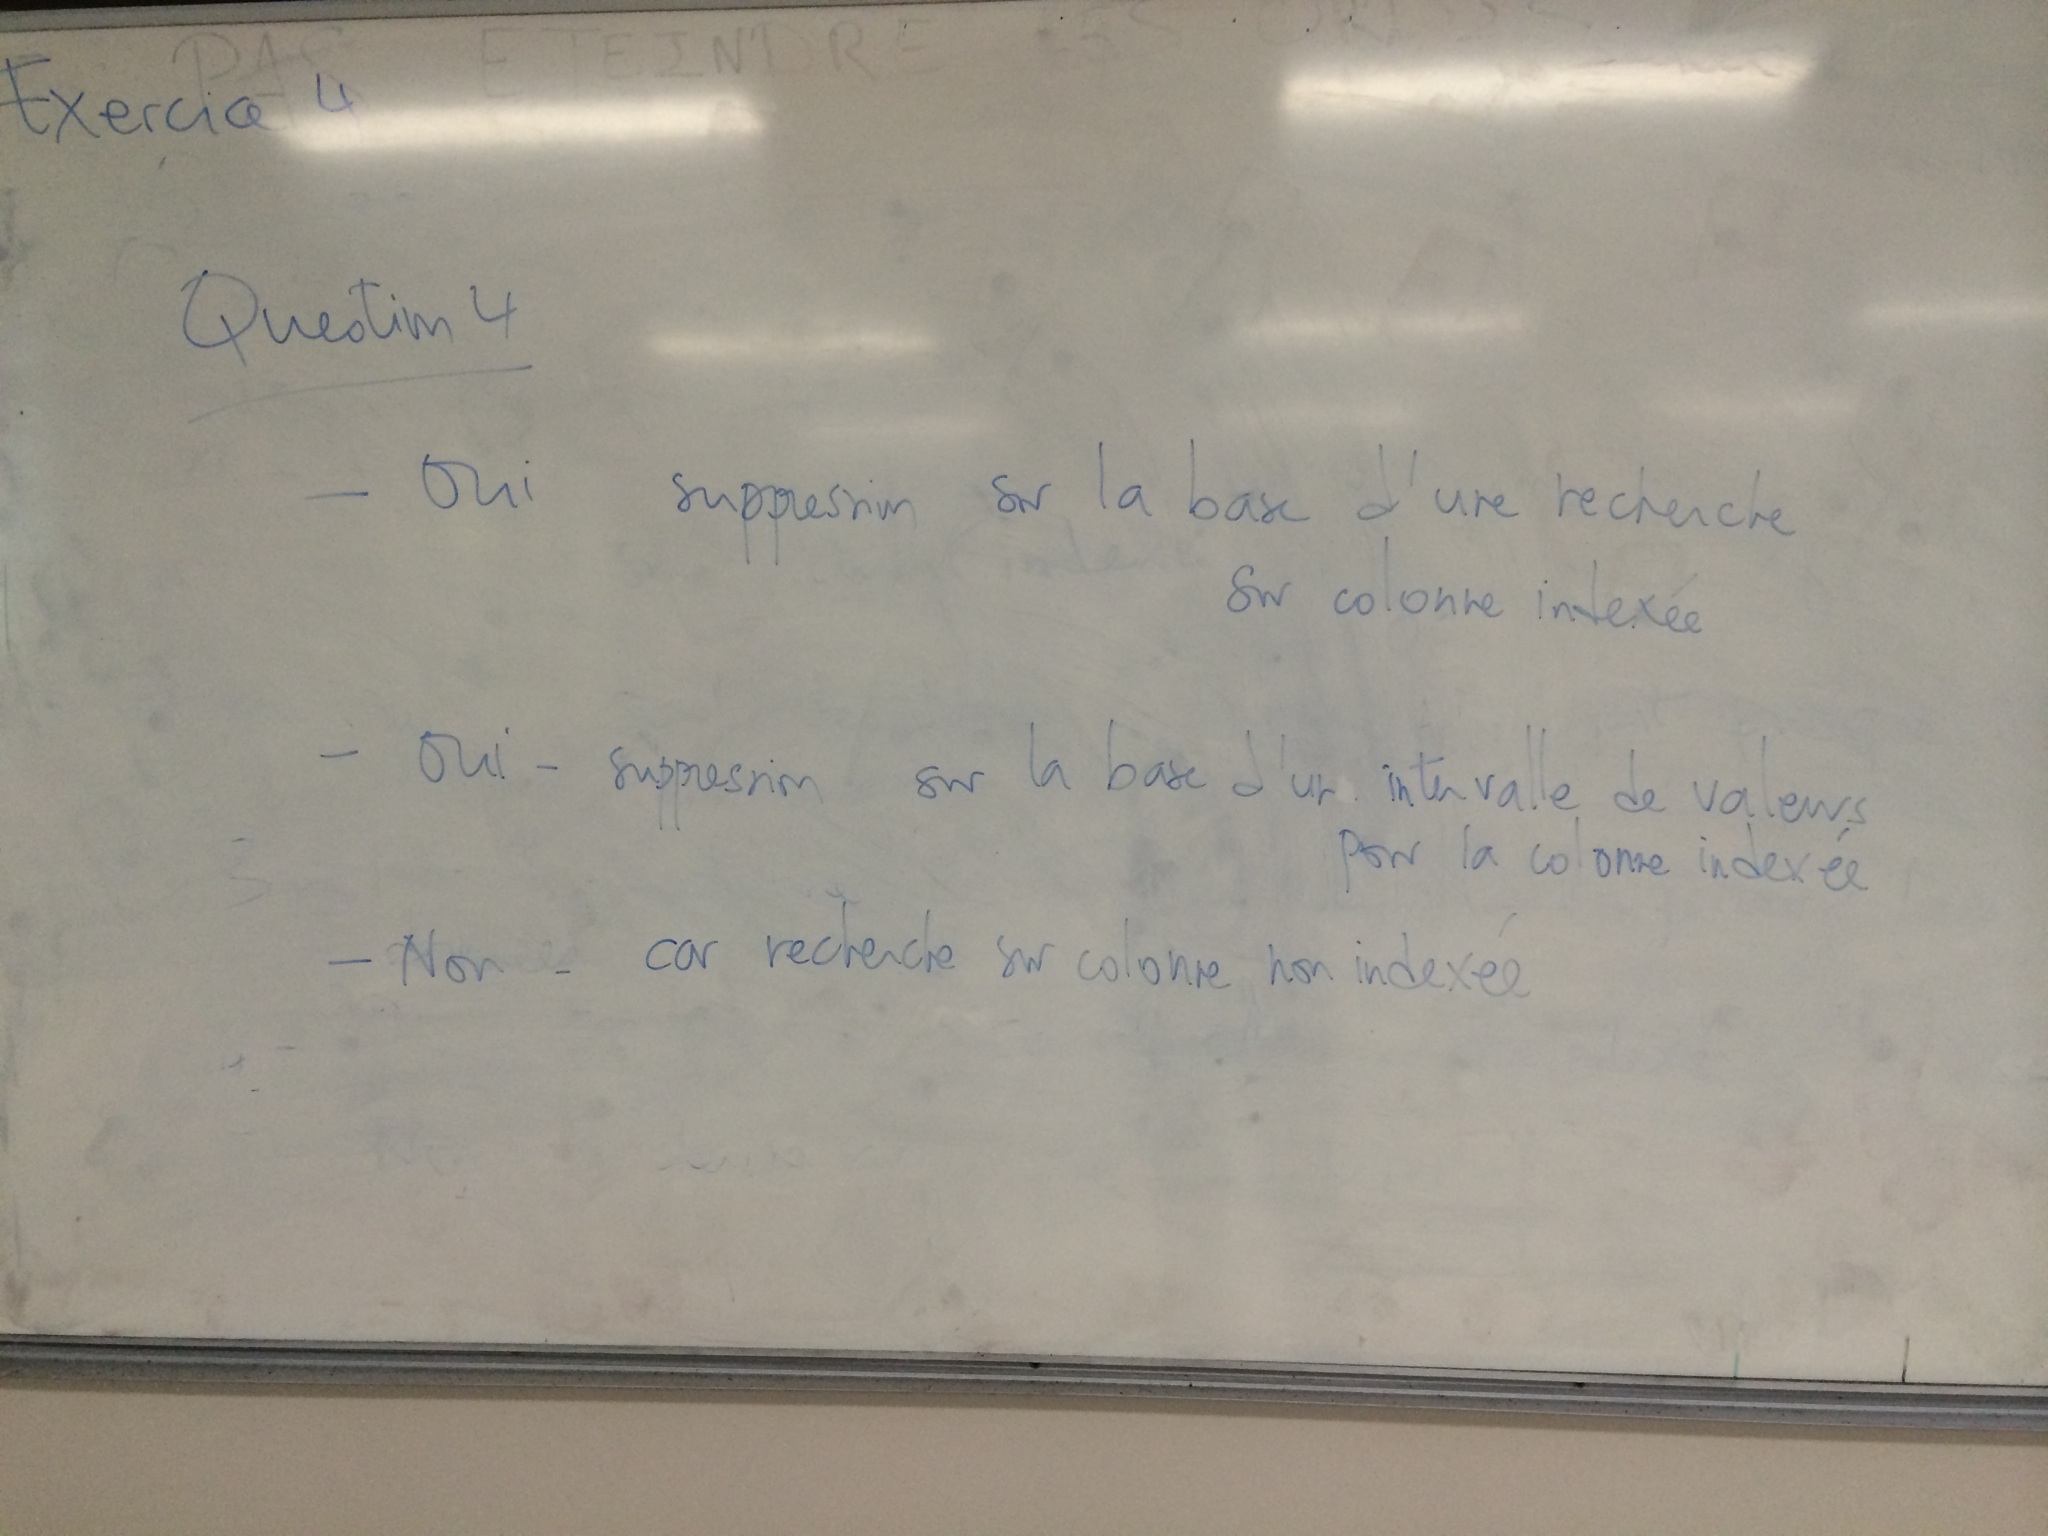 PAS ETEINDRE LES ORDIS
Exercice 4
Question 4
- Oui suppression sur la base d'une recherche
sur colonne indexée
- Oui - suppression sur la base d'un intervalle de valeurs
pour la colonne indexée
- Non - car recherche sur colonne non indexée